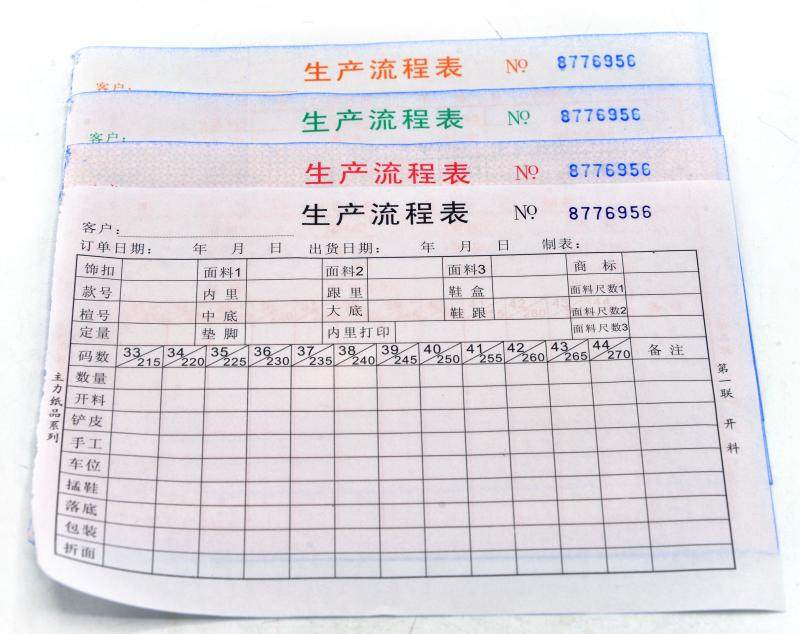 生产流程表 No 8776956
客户:
生产流程表 No 8776956
客户:
生产流程表 No 8776956
生产流程表 No 8776956
客户:
订单日期: 年 月 日 出货日期: 年 月 日 制表:
饰扣 面料1 面料2 面料3 商标
款号 内里 跟里 鞋盒 面料尺数1
楦号 中底 大底 鞋跟 面料尺数2
定量 垫脚 内里打印 面料尺数3
码数 33/215 34/220 35/225 36/230 37/235 38/240 39/245 40/250 41/255 42/260 43/265 44/270 备注
数量
开料
铲皮
手工
车位
掹鞋
落底
包装
折面
主力纸品系列
第一联 开料